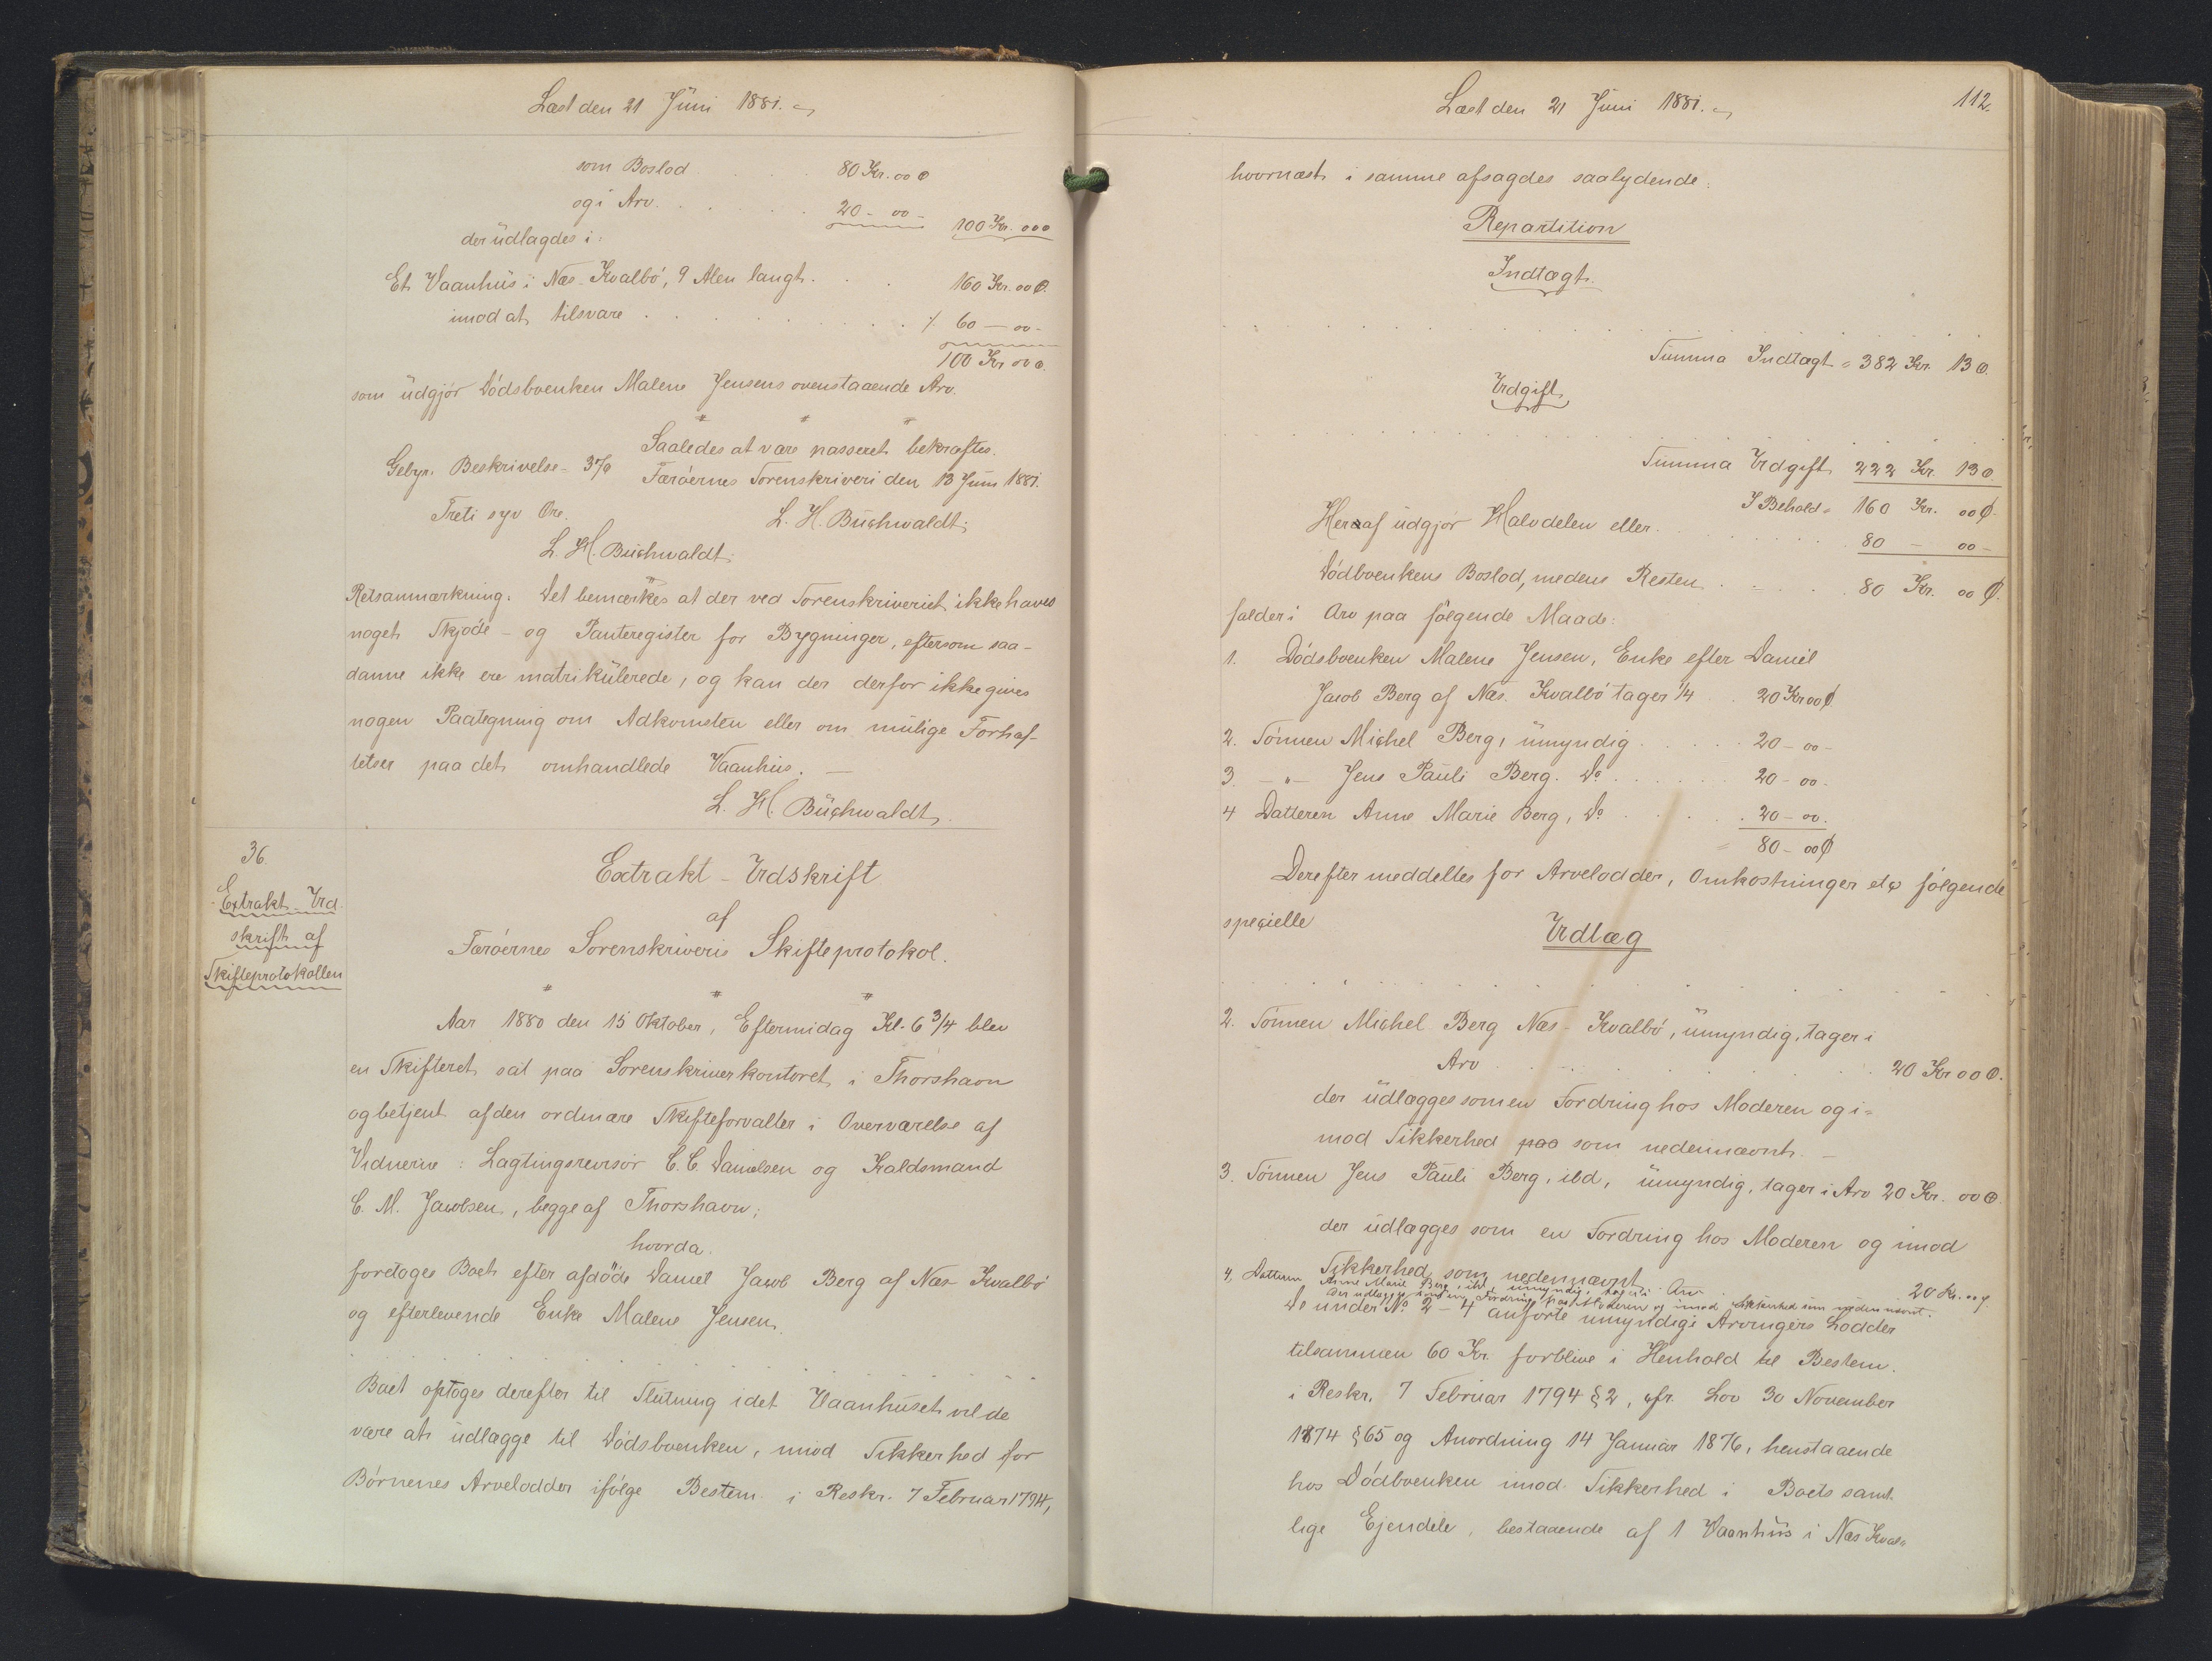 Læst den 21 Juni 1881.
som Boslod . . . . 80 Kr. 00 Ø
og i Arv. . . . . . 20 - 00 - 100 Kr. 00 Ø
der udlagdes i:
Et Vaanhus i Næs-Kvalbø, 9 Alen langt . . . 160 Kr. 00 Ø.
imod at tilsvare . . . . . . . . ./. 60 — 00 -
100 Kr 00 Ø.
som udgjør Dødsboenken Malene Jensens ovenstaaende Arv.
Saaledes at være passeret bekræftes.
Gebyr. Beskrivelse = 37 Ø
Færøernes Sorenskriveri den 13 Juni 1881.
Treti syv Øre.
L. H. Buchwaldt
L. H. Buchwaldt
Retsanmærkning. Det bemærkes at der ved Sorenskriveriet ikke haves
noget Skjøde- og Panteregister for Bygninger, eftersom saa-
danne ikke ere matrikulerede, og kan der derfor ikke gives
nogen Paategning om Adkomsten eller om mulige Forhæf-
telser paa det omhandlede Vaanhus. —
L. H. Buchwaldt.
36.
Extrakt-Ud-
skrift af
Skifteprotokollen
Extrakt-Udskrift
af
Færøernes Sorenskriveris Skifteprotokol.
Aar 1880 den 15 Oktober, Eftermidag Kl. 6 3/4 blev
en Skifteret sat paa Sorenskriverkontoret i Thorshavn
og betjent af den ordinære Skifteforvalter i Overværelse af
Vidnerne: Lagtingsrevisor C. C. Danielsen og Kaldsmand
C. M. Jacobsen, begge af Thorshavn;
hvorda
foretoges Boet efter afdøde Daniel Jacob Berg af Næs-Kvalbø
og efterlevende Enke Malene Jensen.
. . . . . . . . . .
Boet optoges derefter til Slutning idet Vaanhuset vilde
være at udlægge til Dødsboenken, imod Sikkerhed for
Børnenes Arvelodder ifølge Bestem. i Reskr. 7 Februar 1794,
Læst den 21 Juni 1881.
112.
hvornæst i samme afsagdes saalydende:
Repartition
Indtægt.
. . . . . . . . . .
Summa Indtægt = 382 Kr. 13 Ø.
Udgift
. . . . . . . . . .
Summa Udgift 222 Kr. 13 Ø.
I Behold = 160 Kr. 00 Ø.
Heraf udgjør Halvdelen eller . . . . . . 80 — 00 -
Dødboenkens Boslod, medens Resten . . . . 80 Kr. 00 Ø.
falder i Arv paa følgende Maade:
1. Dødsboenken Malene Jensen, Enke efter Daniel
Jacob Berg af Næs-Kvalbø tager 1/4 . . 20 Kr 00 Ø
2. Sønnen Michel Berg, umyndig . . . . . 20 - 00 -
3. - " - Jens Pauli Berg. Do . . . . . . 20 - 00 -
4 Datteren Anne Marie Berg, Do . . . . . 20 - 00.
= 80 - 00 Ø
Derefter meddeltes for Arvelodder, Omkostninger etc følgende
specielle
Udlæg
. . . . . . . . . .
2. Sønnen Michel Berg Næs-Kvalbø, umyndig, tager i
Arv . . . . . . . . . 20 Kr 00 Ø.
der udlægges som en Fordring hos Moderen og i-
mod Sikkerhed paa som nedennævnt. —
3. Sønnen Jens Pauli Berg, ibd, umyndig, tager i Arv 20 Kr. 00 Ø
der udlægges som en Fordring hos Moderen og imod
Sikkerhed som nedennævnt.
4, Datteren Anne Marie Berg, ibd umyndig, tager i Arv . 20 Kr. 00 Ø.
der udlægges som en Fordring hos Moderen og imod Sikkerhed som nedennævnt.
De under No 2 - 4 anførte umyndige Arvingers Lodder
tilsammen 60 Kr. forblive i Henhold til Bestem.
i Reskr. 7 Februar 1794 § 2, cfr. Lov 30 November
1874 § 65 og Anordning 14 Januar 1876, henstaaende
hos Dødboenken imod Sikkerhed i Boets samt-
lige Ejendele, bestaaende af 1 Vaanhus i Næs Kval-